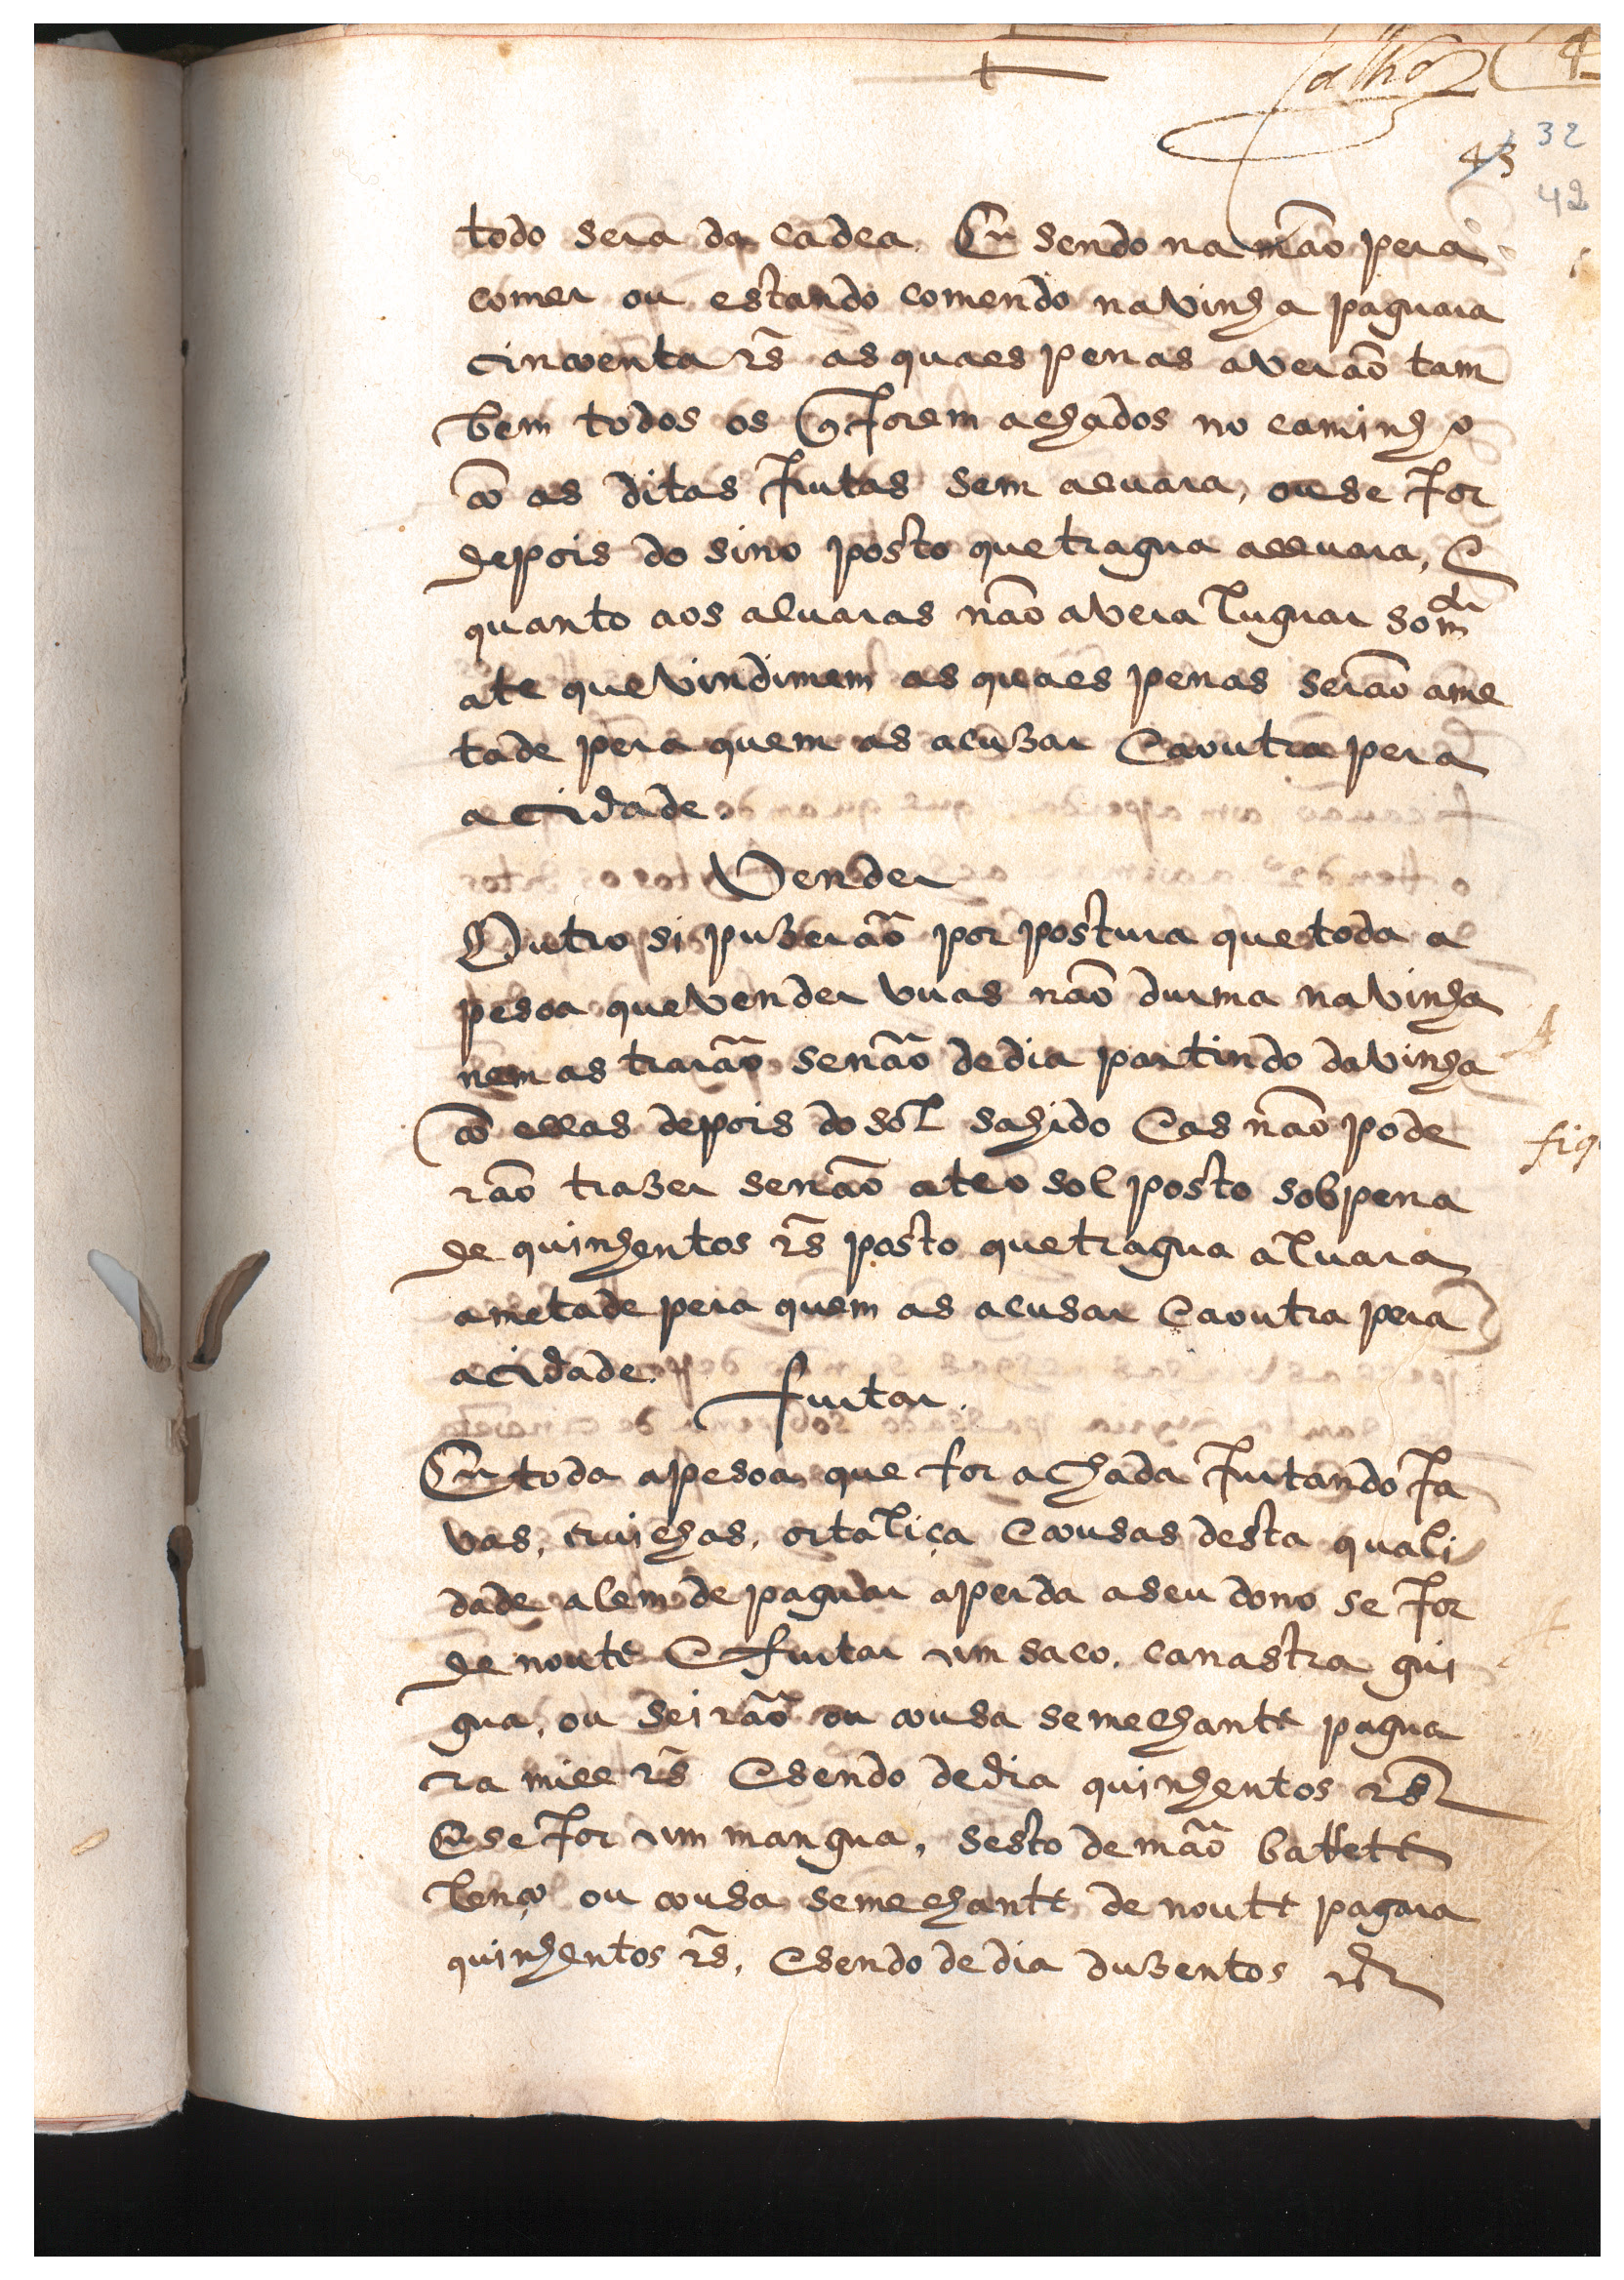 4
43 32
42
todo sera da cadea. E sendo na mão pera
comer ou estando comendo na vinha paguara
cincoenta rs̃ as quaes penas averão tam
bem todos os q̃ forem achados no caminho
cõ as ditas frutas sem alvara, ou se for
depois do sino posto que tragua allvara, E
quanto aos alvaras não avera luguar som
ate que vindimem as quaes penas serão ame
tade pera quem as acuzar E a outra pera
a cidade.
Vender
Outro si puzerão por postura que toda a
pesoa que vender vuas não durma na vinha
nem as trarão senão de dia partindo da vinha
cõ ellas depois do sol sahido E as não pode
rão trazer senão ate o sol posto sob pena
de quinhentos rs̃ posto que tragua alvara
ametade pera quem as acusar E a outra pera
a cidade.
Furtar.
E toda a pesoa que for achada furtando fa
vas, ervilhas, ortaliça E cousas desta quali
dade alem de paguar a perda a seu dono se for
de noute E furtar um saco, canastra gui
gua, ou seirão ou cousa semelhante pagua
ra mill rs̃ E sendo de dia quinhentos rs̃
E se for um mangua, sesto de mão
lenço ou cousa semelhante de noute pagara
quinhentos rs̃, E sendo de dia duzentos rs̃